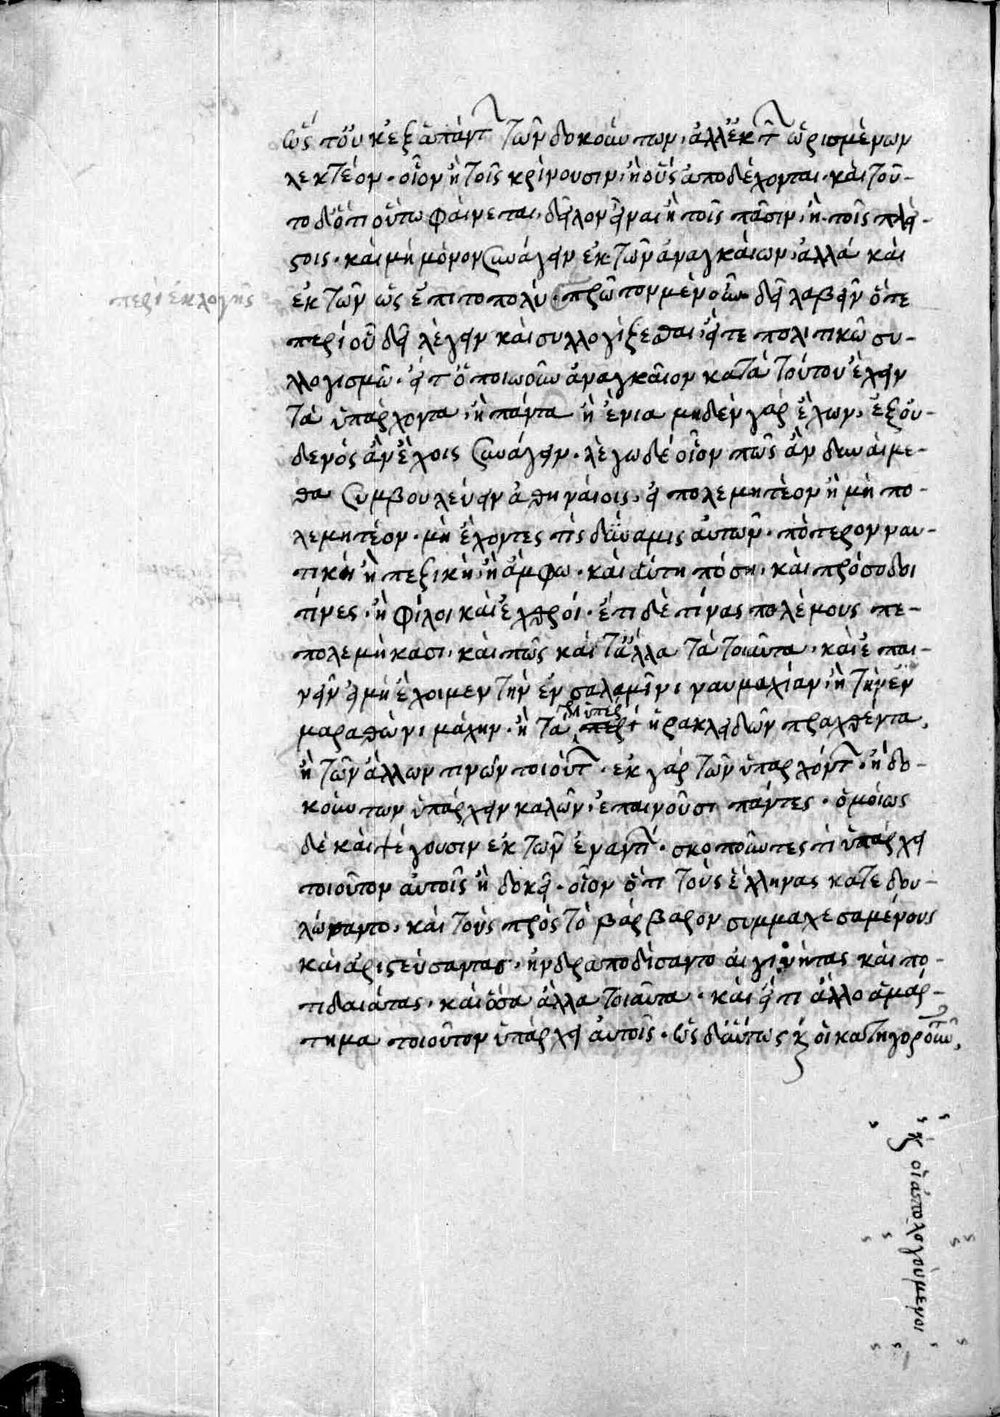 ὥστ' οὐκ ἐξ ἁπάντ τῶν δοκούντων, ἀλλ' ἐκ τ ὡρισμένων
λεκτέον· οἷον ἢ τοῖς κρίνουσιν, ἢ οὓς ἀποδέχονται· καὶ τοῦ-
το δ' ὅτι οὕτω φαίνεται, δῆλον εἶναι ἢ τοῖς πᾶσιν, ἢ τοῖς πλεί-
στοις· καὶ μὴ μόνον συνάγειν ἐκ τῶν ἀναγκαίων, ἀλλὰ καὶ
περὶ ἐκλογῆς
ἐκ τῶν ὡς ἐπιτοπολύ· πρῶτον μὲν οὖν δεῖ λαβεῖν ὅτι
περὶ οὗ δεῖ λέγειν καὶ συλλογίζεσθαι, εἴτε πολιτικῶ συ-
λλογισμῶ· εἴθ' ὁποιωοῦν ἀναγκαῖον κατὰ τούτου ἔχειν
τὰ ὑπάρχοντα, ἢ πάντα ἢ ἔνια μηδὲν γὰρ ἔχων, ἐξ οὐ-
δενὸς ἂν ἔχοις συνάγειν· λέγω δὲ οἷον πῶς ἂν δυναίμε-
θα συμβουλεύειν ἀθηναίοις, εἰ πολεμητέον ἢ μὴ πο-
λεμητέον· μὴ ἔχοντες τίς δύναμις αὐτῶν· πότερον ναυ-
τικὴ ἢ πεζικὴ, ἢ ἄμφω· καὶ αὕτη πόση, καὶ πρόσοδοι
τίνες· ἢ φίλοι καὶ ἐχθροί· ἔτι δὲ τίνας πολέμους πε-
πολεμήκασι, καὶ πῶς καὶ τἄλλα τὰ τοιαῦτα· καὶ ἐπαι-
νεῖν εἰ μὴ ἔχοιμεν τὴν ἐν σαλαμῖνι ναυμαχίαν, ἢ τὴν ἐν
μαραθῶνι μάχην· ἢ τὰ ὑπὲρ ἡρακλειδῶν πραχθέντα,
ἢ τῶν ἄλλων τινῶν τοιούτ· ἐκ γὰρ τῶν ὑπαρχόντ, ἢ δο-
κούντων ὑπάρχειν καλῶν, ἐπαινοῦσι πάντες· ὁμοίως
δὲ καὶ ψέγουσιν ἐκ τῶν ἐναντί· σκοποῦντες τί ὑπάρχει
τοιοῦτον αὐτοῖς ἢ δοκεῖ· οἷον ὅτι τοὺς ἕλληνας κατεδου-
λώσαντο, καὶ τοὺς πρὸς τὸ βάρβαρον συμμαχεσαμένους
καὶ ἀριστεύσαντας, ἠνδραποδίσαντο αἰγινήτας καὶ πο-
τιδαιάτας· καὶ ὅσα ἄλλα τοιαῦτα· καὶ εἴ τι ἄλλο ἁμάρ-
τημα τοιοῦτον ὑπάρχει αὐτοῖς· ὡς δ' αὕτως κ οἱ κατηγοροῦν,
κ οἱ ἀπολογούμενοι